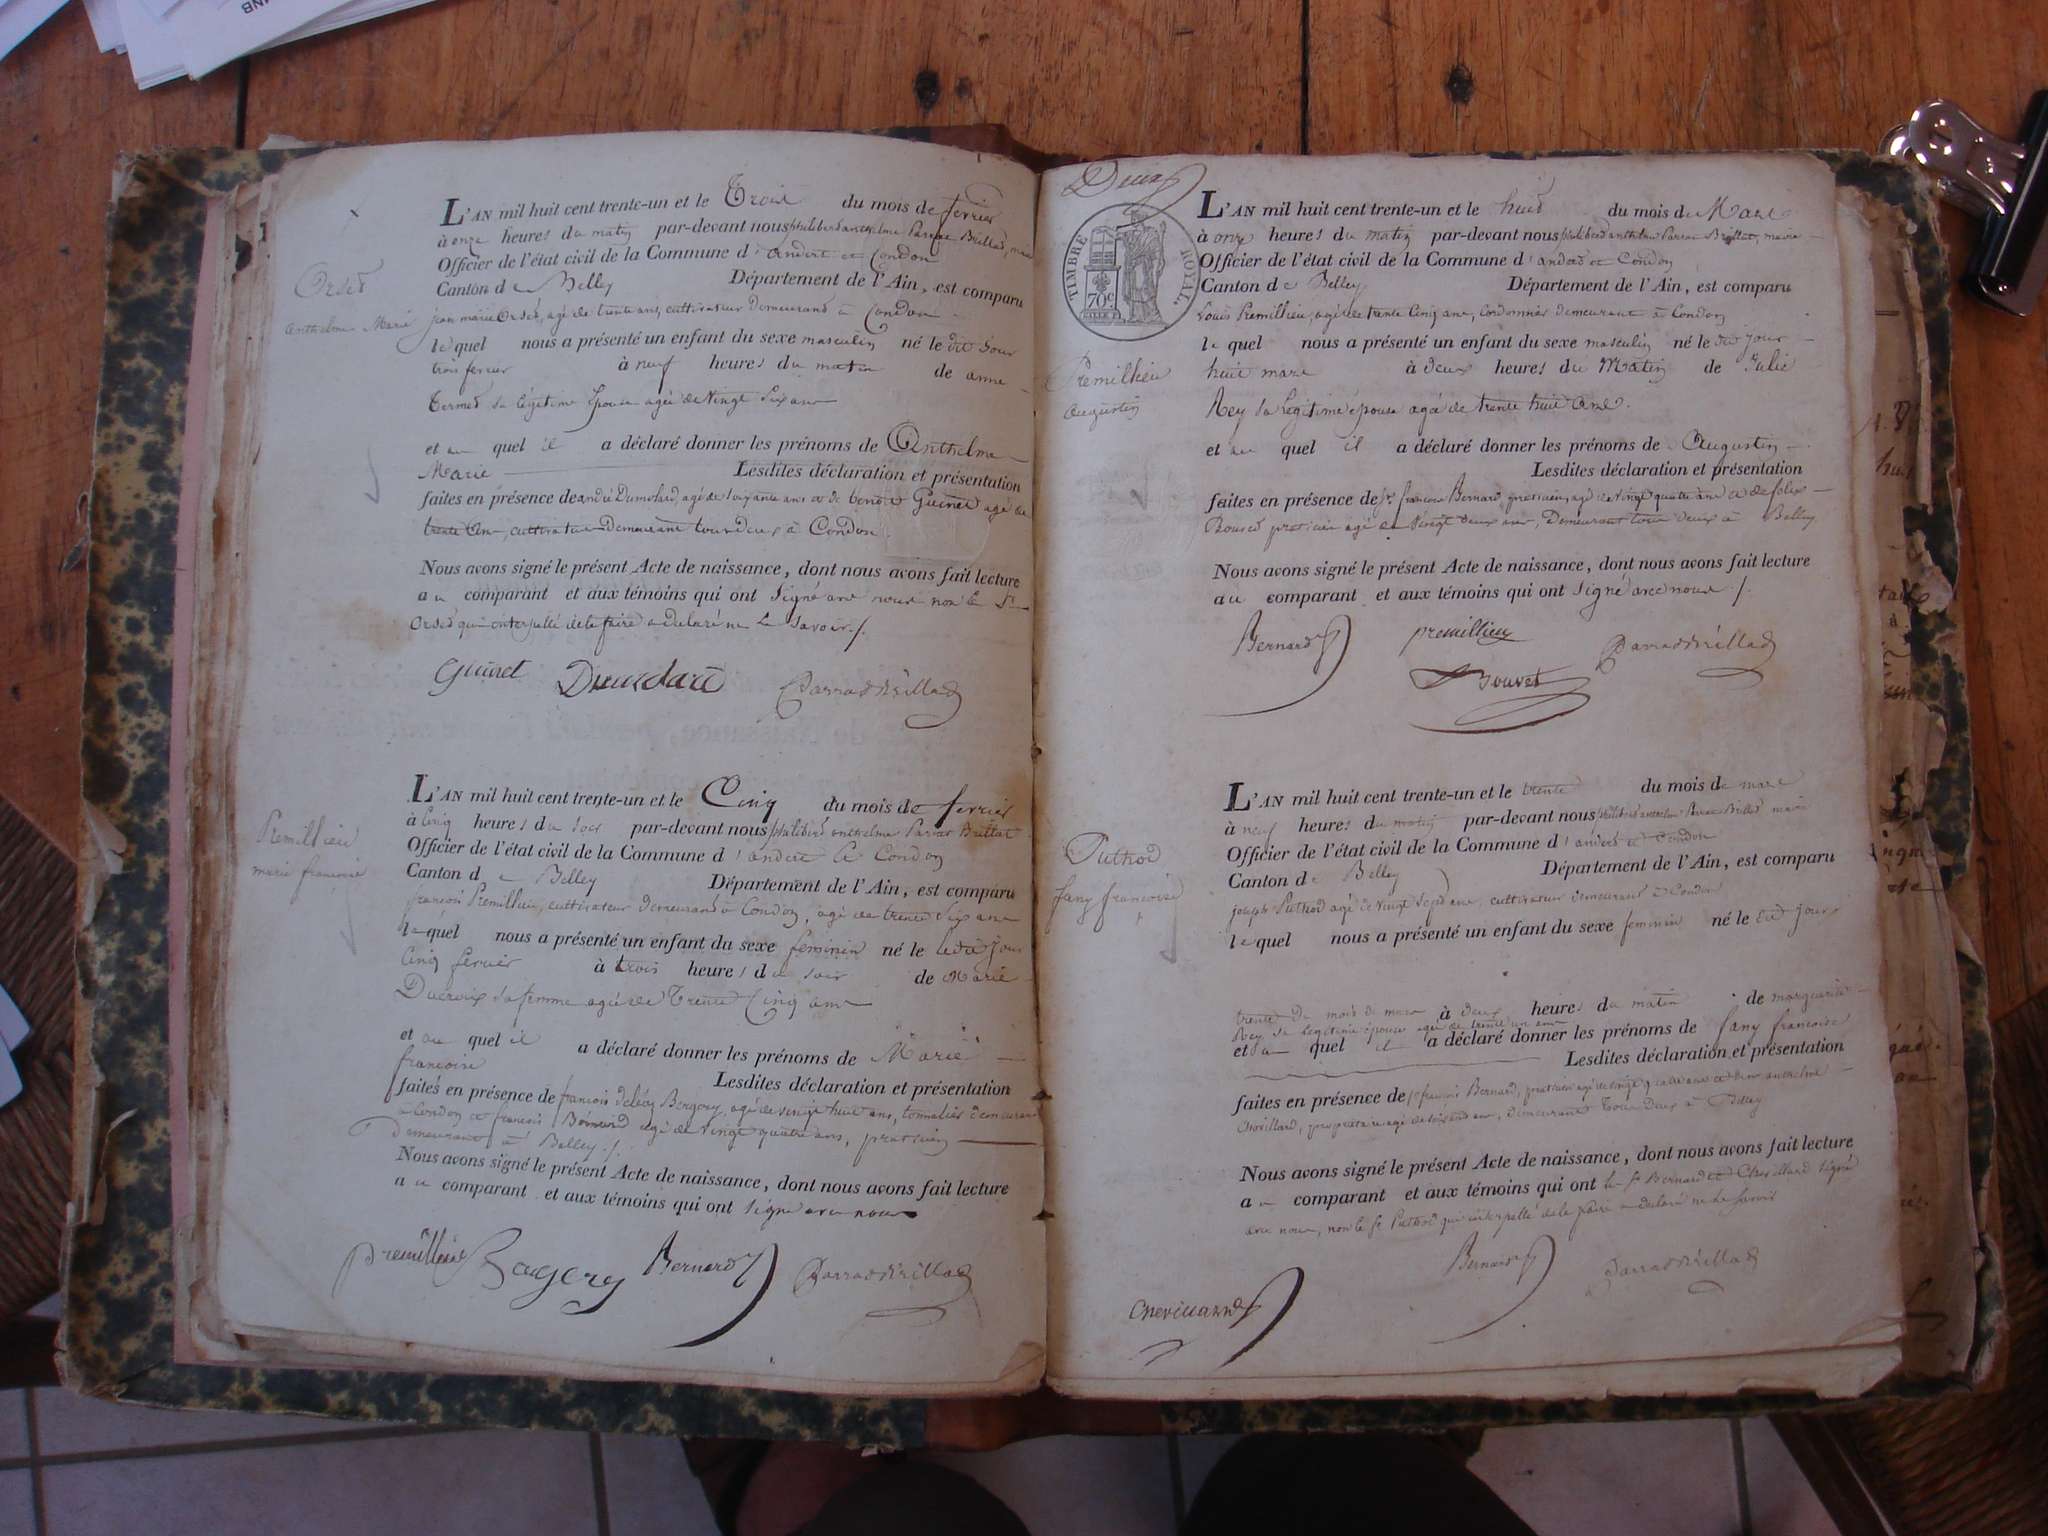 Orset
anthelme Marie
L'AN mil huit cent trente-un et le Trois du mois de fevrier
à onze heures du matin par-devant nous philibert anthelme Parrat Brillat, maire
Officier de l'état civil de la Commune d'andert et Condon
Canton de Belley Département de l'Ain, est comparu
jean marie Orset, agé de trente ans, cultivateur demeurant à Condon
lequel nous a présenté un enfant du sexe masculin né le dit jour
trois fevrier à neuf heures du matin de anne
sa légitime Epouse agée de Vingt Six ans
et au quel il a déclaré donner les prénoms de Anthelme
Marie Lesdites déclaration et présentation
faites en présence de andré Dumolard, agé de soixante ans et de Guinet agé de
trente ans, cultivateur Demeurant tous deux à Condon.
Nous avons signé le présent Acte de naissance, dont nous avons fait lecture
au comparant et aux témoins qui ont signé avec nous non le Sr
Orset qui interpellé de le faire a déclaré ne le savoir ./.
Guinet Dumolard Parrat Brillat
Premillieu
marie francoise
L'AN mil huit cent trente-un et le Cinq du mois de fevrier
à Cinq heures du soir par-devant nous philibert anthelme Parrat Brillat
Officier de l'état civil de la Commune d'andert et Condon
Canton de Belley Département de l'Ain, est comparu
françois Premillieu, cultivateur demeurant à Condon, agé de trente Six ans
lequel nous a présenté un enfant du sexe feminin né le ledit jour
Cinq fevrier à trois heures du soir de Marie
Ducroix sa femme agée de Trente Cinq ans
et au quel il a déclaré donner les prénoms de Marie
francoise Lesdites déclaration et présentation
faites en présence de françois agé de vingt huit ans, tonnelier demeurant
à Condon et françois Bernard agé de vingt quatre ans, praticien
Demeurant à Belley ./.
Nous avons signé le présent Acte de naissance, dont nous avons fait lecture
au comparant et aux témoins qui ont signé avec nous
premillieu Bernard Parrat Brillat
Deux
TIMBRE ROYAL.
70c
L'AN mil huit cent trente-un et le huit du mois de Mars
à onze heures du matin par-devant nous philibert anthelme Parrat Brillat, maire
Officier de l'état civil de la Commune d'andert et Condon
Canton de Belley Département de l'Ain, est comparu
Louis Premillieu, agé de trente Cinq ans, Cordonnier demeurant à Condon
lequel nous a présenté un enfant du sexe masculin né le dit jour
Premillieu
augustin
huit mars à deux heures du Matin de Julie
Rey sa légitime épouse agée de trente huit ans.
et au quel il a déclaré donner les prénoms de Augustin
Lesdites déclaration et présentation
faites en présence de sr. françois Bernard praticien, agé de Vingt quatre ans et de felix
Bouvet praticien agé de Vingt deux ans, Demeurant tous deux à Belley
Nous avons signé le présent Acte de naissance, dont nous avons fait lecture
au comparant et aux témoins qui ont signé avec nous ./.
Bernard premillieu Parrat Brillat
Bouvet
Puthod
fany francoise
L'AN mil huit cent trente-un et le trente du mois de mars
à neuf heures du matin par-devant nous philibert anthelme Parrat Brillat maire
Officier de l'état civil de la Commune d'andert et Condon
Canton de Belley Département de l'Ain, est comparu
joseph Puthod agé de vingt sept ans, cultivateur demeurant à Condon
lequel nous a présenté un enfant du sexe feminin né le dit jour
trente du mois de mars à deux heures du matin de marguerite
Rey sa légitime épouse agée de trente un ans
et au quel il a déclaré donner les prénoms de fany francoise
Lesdites déclaration et présentation
faites en présence de sr françois Bernard, praticien agé de vingt quatre ans et anthelme
Chevillard, propriétaire agé de ans, demeurant tous deux à Belley
Nous avons signé le présent Acte de naissance, dont nous avons fait lecture
au comparant et aux témoins qui ont le sr Bernard et Chevillard signé
avec nous, non le sr Puthod qui interpellé de le faire a déclaré ne le savoir
Bernard Parrat Brillat
Chevillard